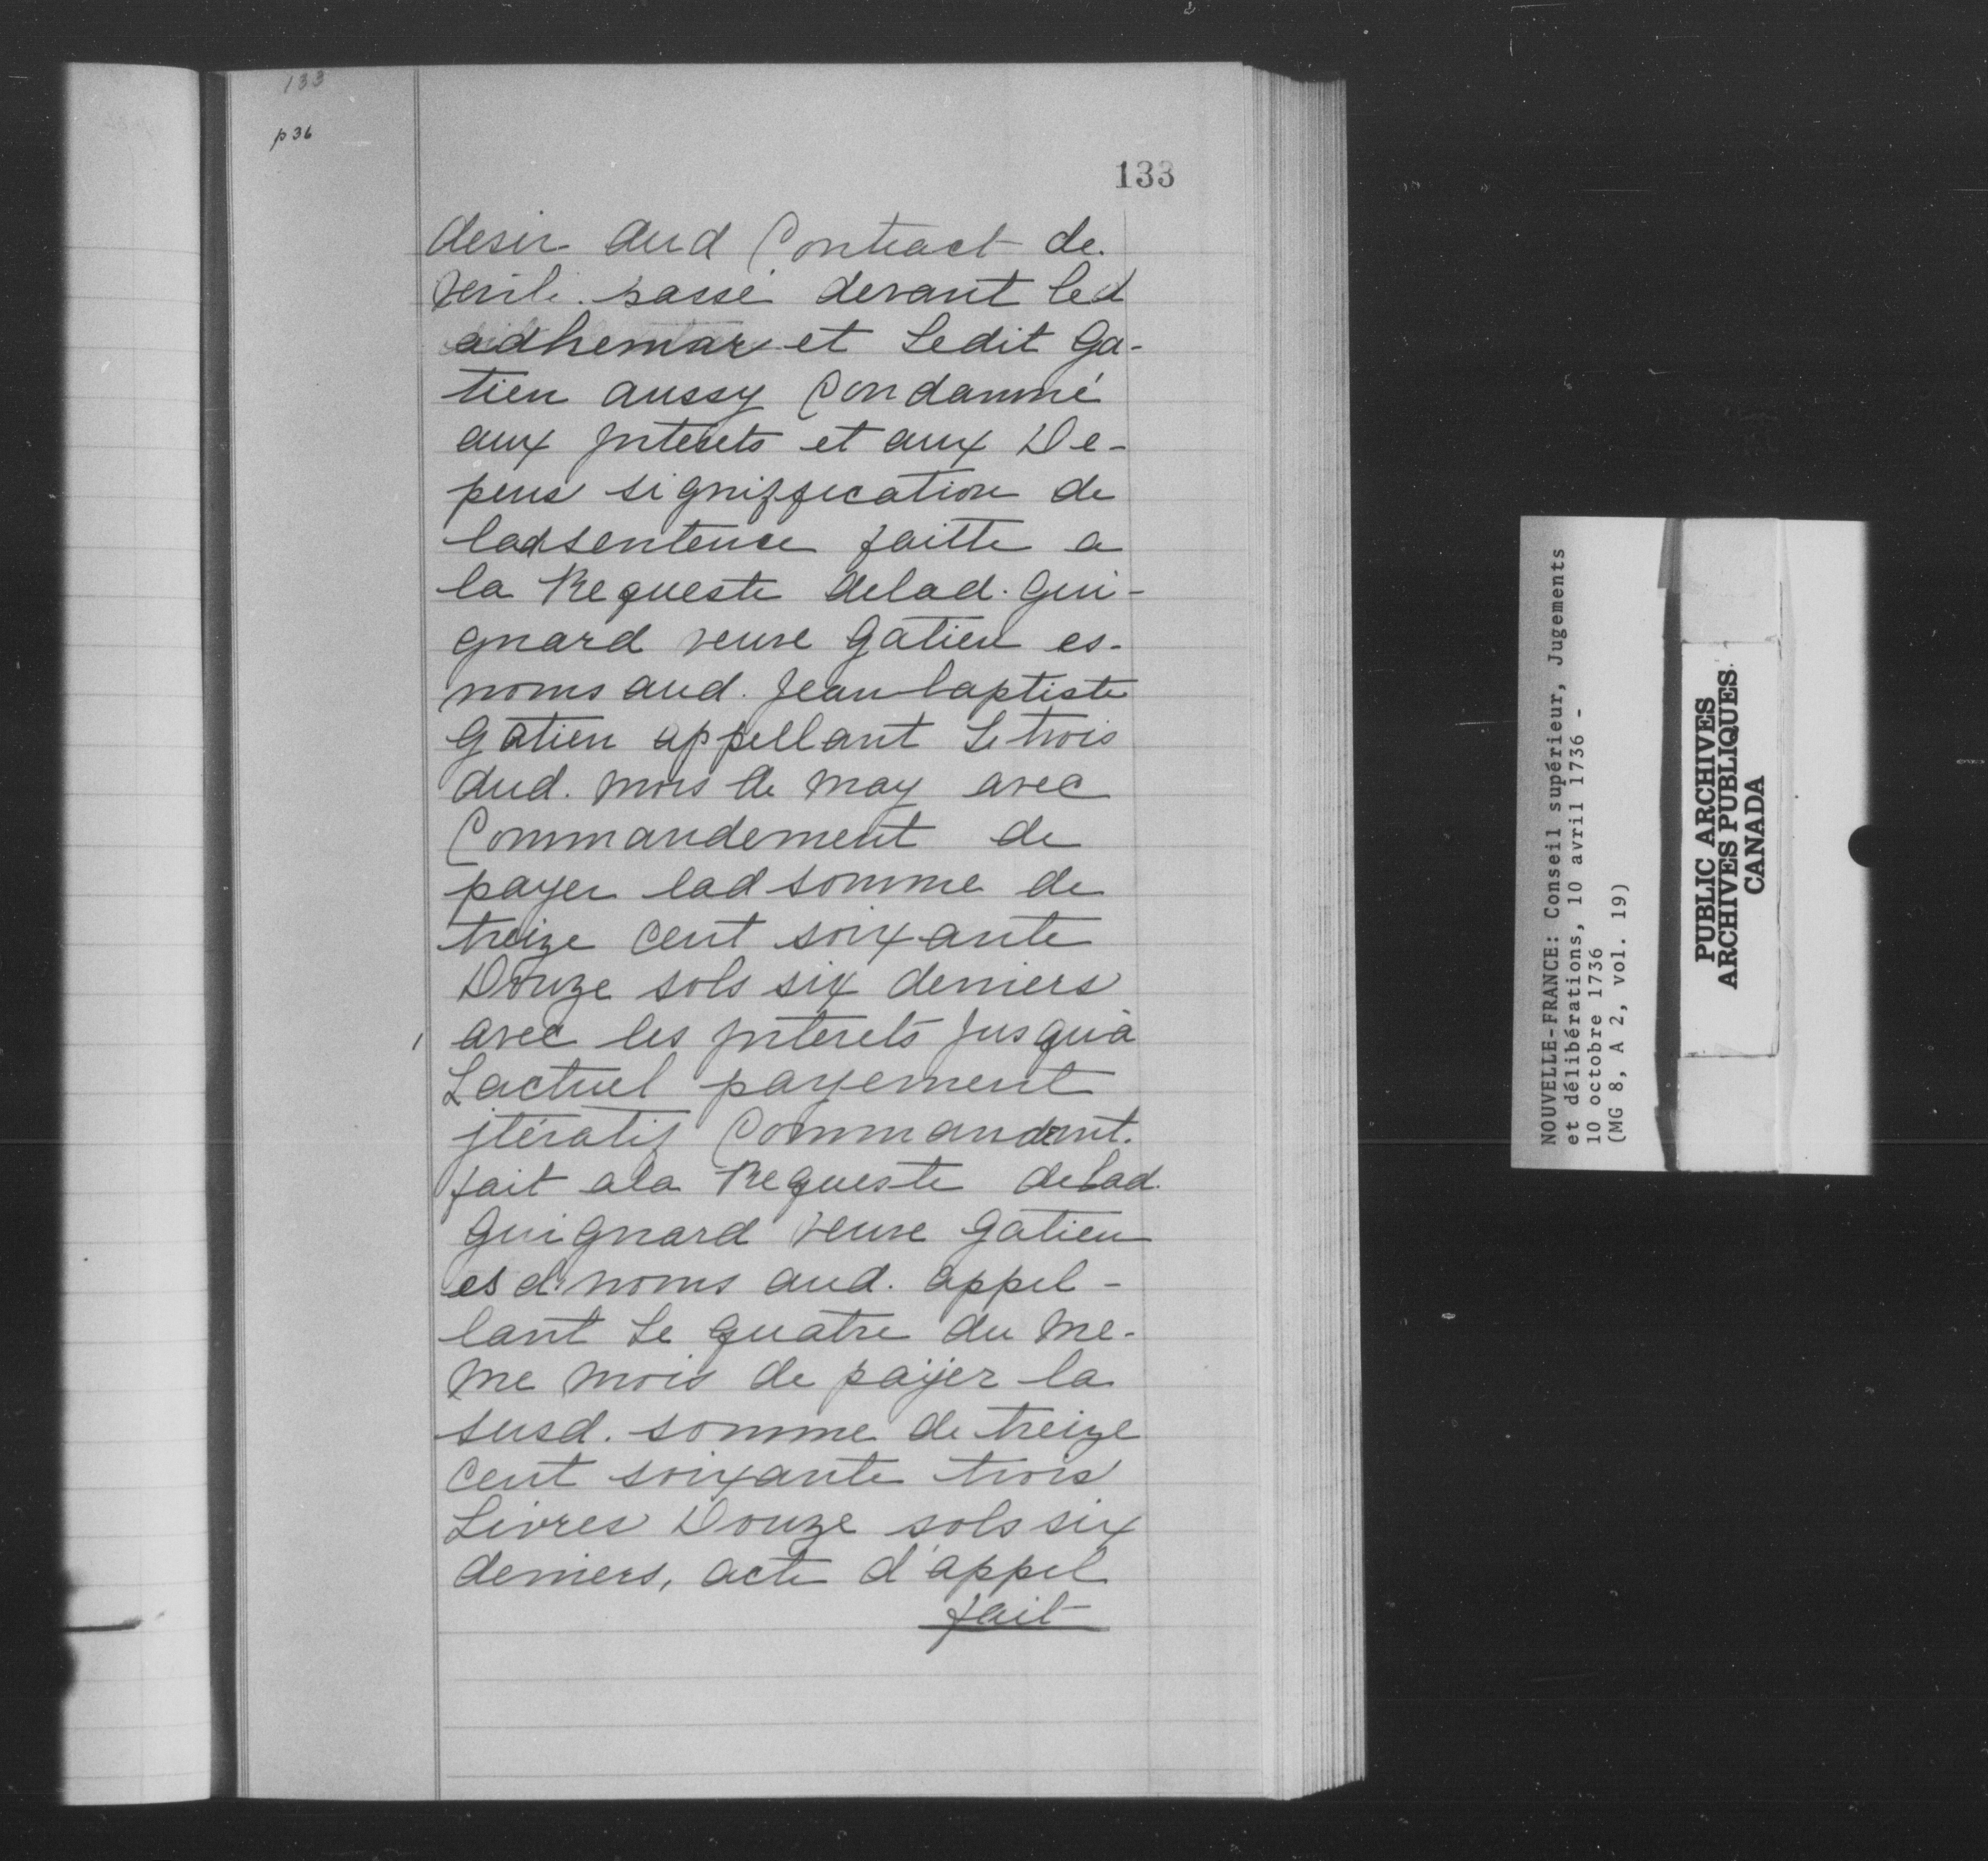 133
p 36
133
desir dud Contract de
vente passé devant led
adhemar et Ledit Ga-
tien aussy Condamné
aux jnterets et aux De-
pens signiffication de
ladsentence faitte a
la Requeste delad. Gui-
gnard veuve gatien es-
noms aud. Jean baptiste
gatien appellant Le trois
dud. mois de may avec
Commandement de
payer lad somme de
treize cent soixante
Douze sols six deniers
avec les jnterets Jusqu'à
Lactuel payement
jtératif Commandemt.
fait ala Requeste delad.
guignard veuve gatien
esd noms aud. appel-
lant Le quatre du me-
me mois de païjer la
susd. somme de treize
cent soixante trois
Livres Douze sols six
deniers, acte d'appel
fait
NOUVELLE-FRANCE: Conseil supérieur, Jugements
et délibérations, 10 avril 1736 -
10 octobre 1736
(MG 8, A 2, vol. 19)
PUBLIC ARCHIVES
ARCHIVES PUBLIQUES
CANADA